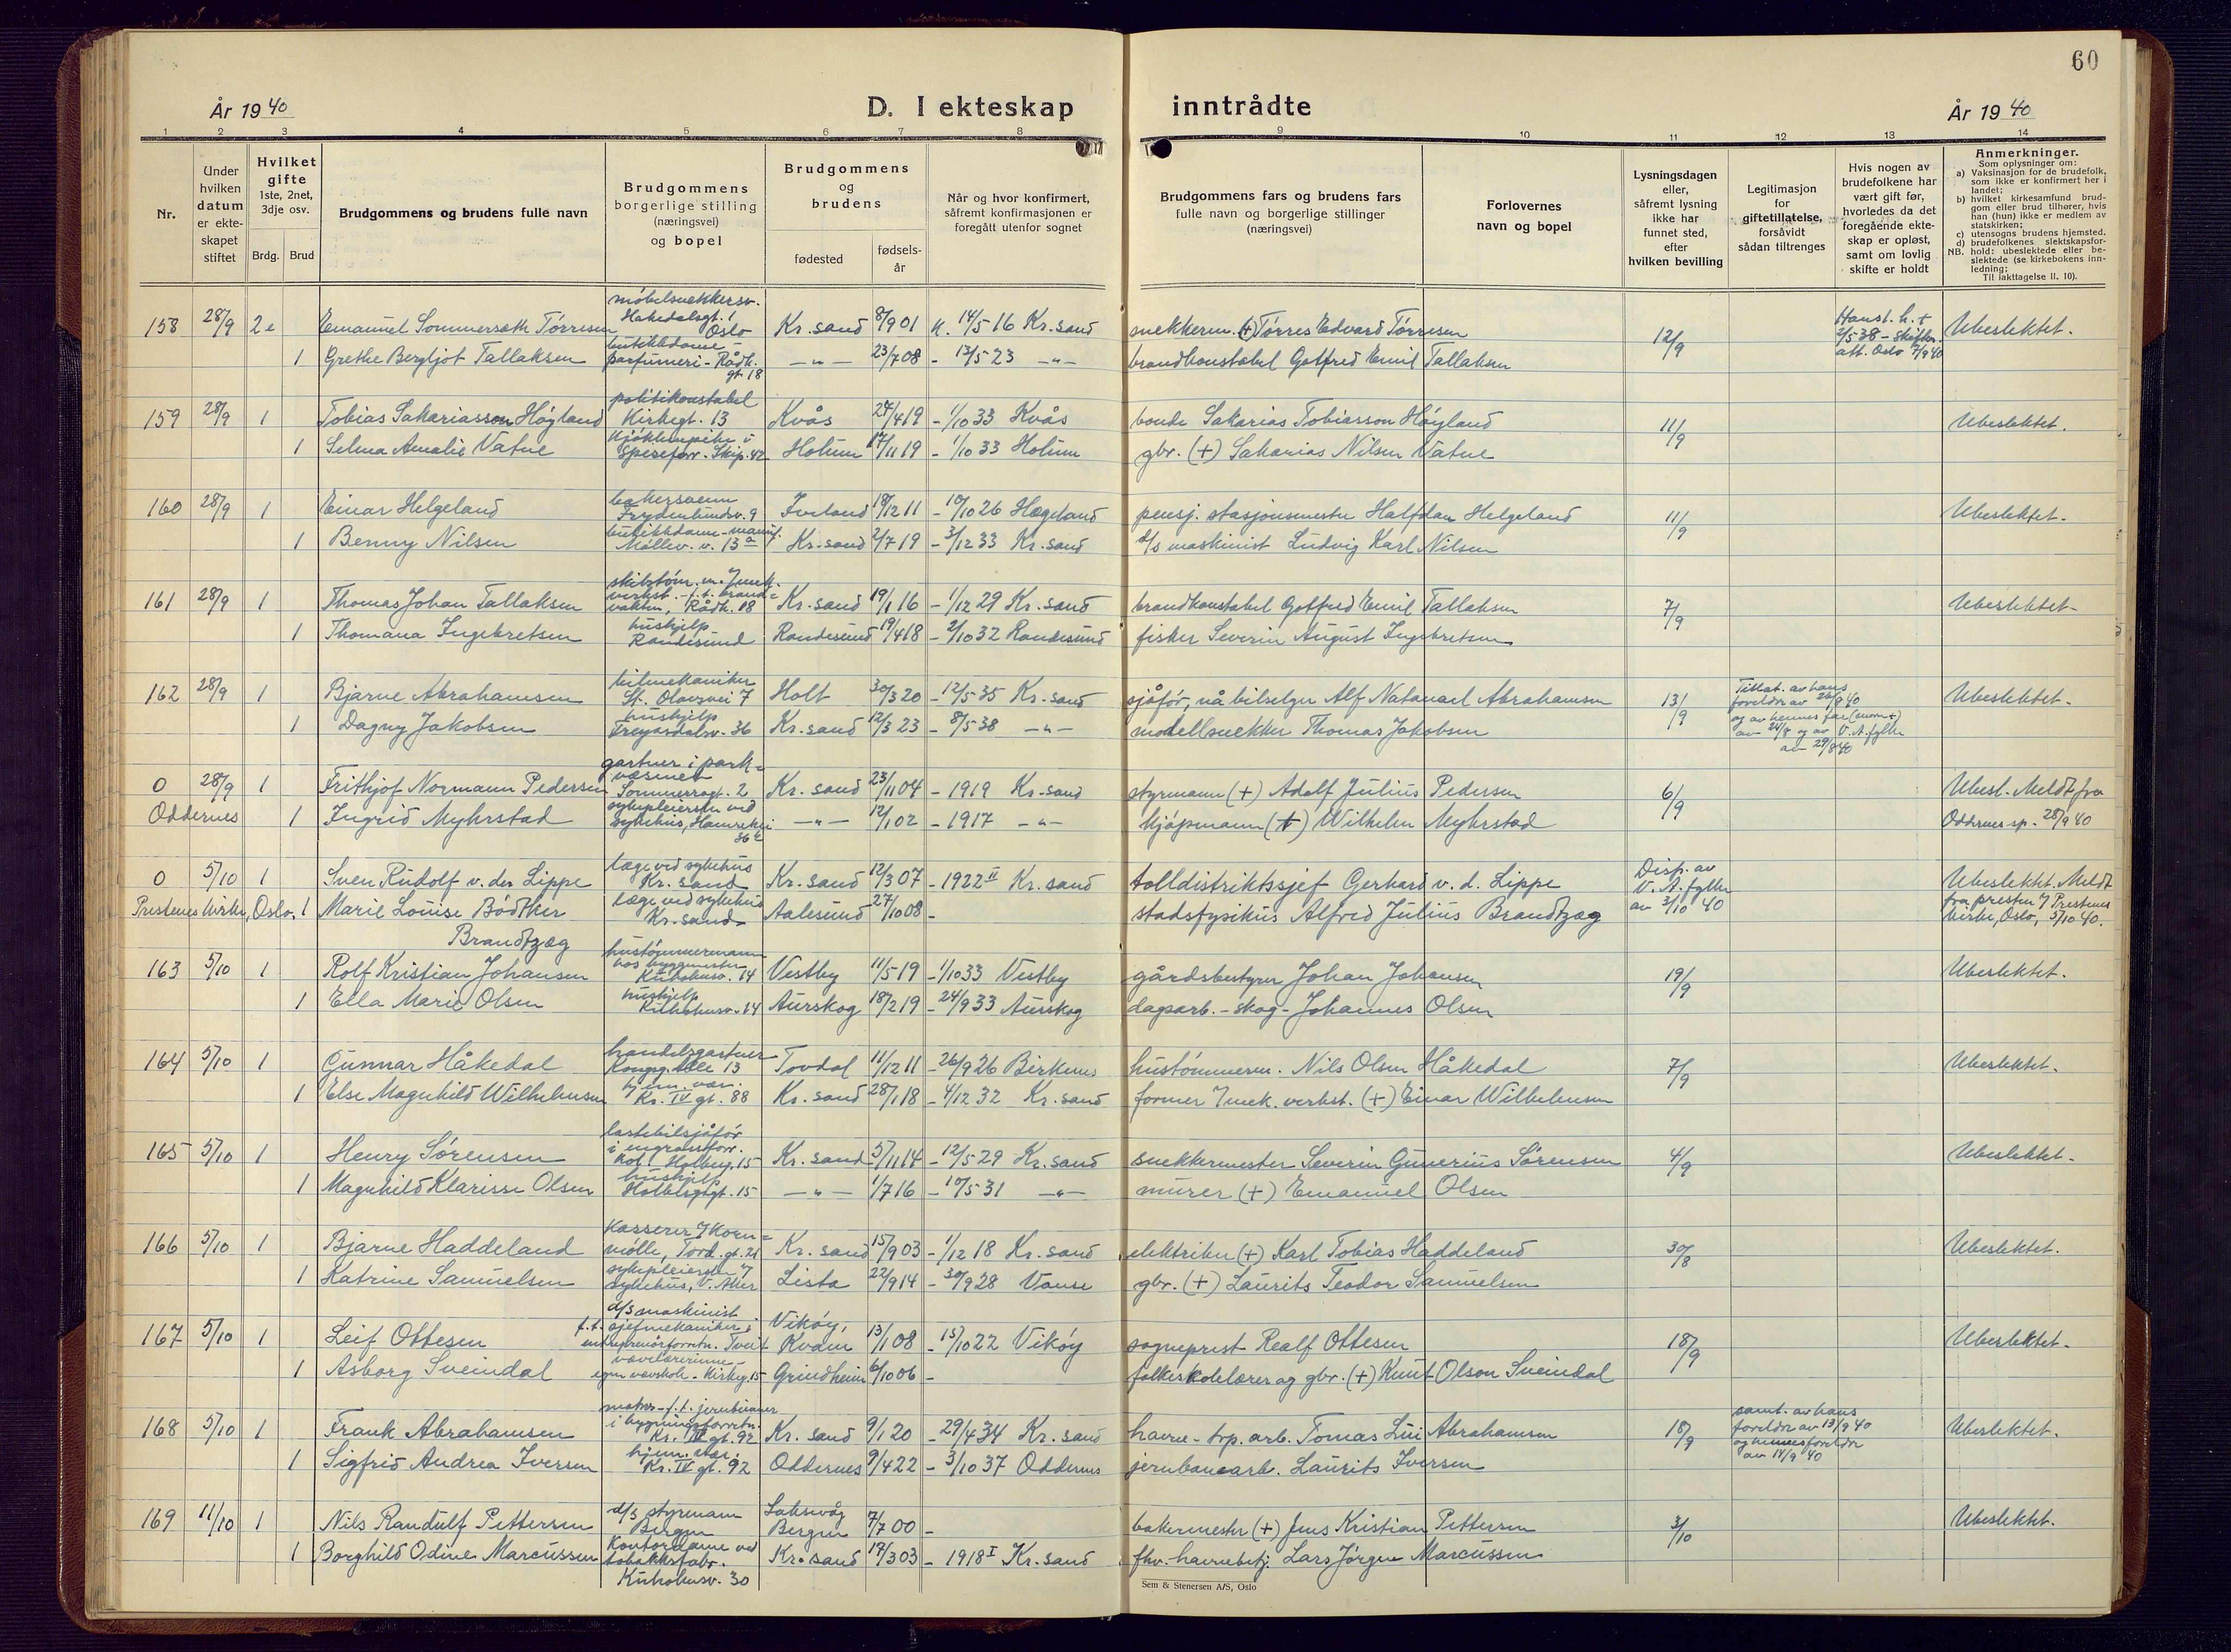 60
År 1940
D. I ekteskap
inntrådte
År 1940
1 2 3 4 5 6 7 8 9 10 11 12 13 14
Nr.
Under hvilken datum er ekteskapet stiftet
Hvilket gifte 1ste, 2net, 3dje osv.
Brdg. Brud
Brudgommens og brudens fulle navn
Brudgommens borgerlige stilling (næringsvei) og bopel
Brudgommens og brudens
fødested
fødsels-år
Når og hvor konfirmert, såfremt konfirmasjonen er foregått utenfor sognet
Brudgommens fars og brudens fars fulle navn og borgerlige stillinger (næringsvei)
Forlovernes navn og bopel
Lysningsdagen eller, såfremt lysning ikke har funnet sted, efter hvilken bevilling
Legitimasjon for giftetillatelse, forsåvidt sådan tiltrenges
Hvis nogen av brudefolkene har vært gift før, hvorledes da det foregående ekteskap er opløst, samt om lovlig skifte er holdt
Anmerkninger.
Som oplysninger om:
a) Vaksinasjon for de brudefolk, som ikke er konfirmert her i landet;
b) hvilket kirkesamfund brudgom eller brud tilhører, hvis han (hun) ikke er medlem av statskirken;
c) utensogns brudens hjemsted.
d) brudefolkenes slektskapsforhold: ubeslektede eller beslektede (se kirkebokens innledning;
NB.
Til iakttagelse II. 10).
158 28/9 2 Emanuel Sommerseth Tørresen møbelsnekkersv. Hakedalsgt. 1 Oslo Kr.sand 8/9 01 K. 14/5 16 Kr.sand snekkerm. (+) Tørres Edvard Tørresen 12/9 Hans 1. h. + 2/5 38 - Skifteatt. Oslo 7/9 40 Ubeslektet.
1 Grethe Bergljot Tallaksen butikkdame - parfumeri - Rådh.gt. 18 -"- 23/7 08 - 13/5 23 -"- brandkonstabel Gotfred Emil Tallaksen
159 28/9 1 Tobias Sakariasson Høyland politikonstabel Kirkegt. 13 Kvås 27/4 19 - 1/10 33 Kvås bonde Sakarias Tobiasson Høyland 11/9 Ubeslektet.
1 Selma Amalie Vatne kjøkkenpike i Speseforr. - Skip. 42 Holum 17/11 19 - 1/10 33 Holum gbr. (+) Sakarias Nilsen Vatne
160 28/9 1 Einar Helgeland bakersvenn Frydenlundsv. 9 Iveland 18/12 11 - 10/10 26 Hægeland pensj. stasjonsmester Halfdan Helgeland 11/9 Ubeslektet.
1 Benny Nilsen butikkdame - manuf. Møllev. v. 13a Kr.sand 2/7 19 - 3/12 33 Kr.sand d/s maskinist Ludvig Karl Nilsen
161 28/9 1 Thomas Johan Tallaksen skibstøm. m. mek. verkst. - f.t. brandvakten, Rådh. 18 Kr.sand 19/1 16 - 1/12 29 Kr.sand brandkonstabel Gotfred Emil Tallaksen 7/9 Ubeslektet
1 Thomana Ingebretsen hushjelp Randesund Randesund 19/4 18 - 2/10 32 Randesund fisker Severin August Ingebretsen
162 28/9 1 Bjarne Abrahamsen bilmekaniker St. Olavsvei 7 Holt 30/3 20 - 12/5 35 Kr.sand sjåfør, nå bilselger Alf Natanael Abrahamsen 13/9 Tillat. av hans foreldre av 26/8 40 og av hennes far (mor +) av 24/8 og av V.A. fylke av 29/8 40 Ubeslektet.
1 Dagny Jakobsen hushjelp Freyasdalsv. 36 Kr.sand 12/3 23 - 8/5 38 -"- modellsnekker Thomas Jakobsen
0 28/9 1 Frithjof Normann Pedersen gartner i parkvæsenet Sommerrogt. 2 Kr.sand 23/11 04 - 1919 Kr.sand styrmann (+) Adolf Julius Pedersen 6/9 Ubesl. Meldt fra
Oddernes 1 Ingrid Myhrstad sykepleierske ved sykehus, -"- 12/1 02 - 1917 -"- kjøpmann (+) Wilhelm Myhrstad Oddernes sp. 28/9 40
0 5/10 1 Sven Rudolf v. der Lippe læge ved sykehus Kr. sand Kr.sand 12/3 07 - 1922 II Kr.sand tolldistriktssjef Gerhard v. d. Lippe Disp. av V. A. fylke av 3/10 40 Ubeslektet. Meldt fra presten i Prestenes kirke, Oslo, 5/10 40.
Prestenes kirke, Oslo, 1 Marie Louise Bødtker Brandtzæg læge ved sykehus Kr. sand Aalesund 27/10 08 - stadsfysikus Alfred Julius Brandtzæg
163 5/10 1 Rolf Kristian Johansen hustømmermann hos byggmester Kuholmsv. 14 Vestby 11/5 19 - 1/10 33 Vestby gårdsbestyrer Johan Johansen 19/9 Ubeslektet.
1 Ella Marie Olsen hushjelp Kuholmsv. 14 Aurskog 18/2 19 - 24/9 33 Aurskog dagarb. - skog - Johannes Olsen
164 5/10 1 Gunnar Håkedal handelsgartner Kongsg. Alle 13 Tovdal 11/12 11 - 26/9 26 Birkenes hustømmerm. Nils Olsen Håkedal 7/9 Ubeslektet.
1 Else Magnhild Wilhelmsen hjem. vær. Kr. IV gt. 88 Kr. sand 28/1 18 - 4/12 32 Kr. sand former i mek. verkst. (+) Einar Wilhelmsen
165 5/10 1 Henry Sørensen lastebilsjåfør i engrosforr. Holberg. 15 Kr. sand 5/11 14 - 12/5 29 Kr.sand snekkermester Severin Gunerius Sørensen 4/9 Ubeslektet.
1 Magnhild Klarisse Olsen hushjelp Holbergsgt. 15 -"- 1/7 16 - 10/5 31 -"- murer (+) Emanuel Olsen
166 5/10 1 Bjarne Haddeland Kasserer i Kornmølle, Tord. gt. 21 Kr. sand 15/9 03 - 1/12 18 Kr. sand elektriker (+) Karl Tobias Haddeland 30/8 Ubeslektet.
1 Katrine Samuelsen sykepleierske i sykehus, V. Aker Lista 22/9 14 - 30/9 28 Vanse gbr. (+) Laurits Teodor Samuelsen
167 5/10 1 Leif Ottesen d/s maskinist f.t. sjefmekaniker i entreprenørforretn. Tveit Vikøy, Kvam 13/1 08 - 15/10 22 Vikøy sogneprest Realf Ottesen 18/9 Ubeslektet.
1 Asborg Sveindal vævelærerinne - egen vævskole - Kirkeg. 15 Grindheim 6/10 06 - folkeskolelærer og gbr. (+) Knut Olson Sveindal
168 5/10 1 Frank Abrahamsen matros - f.t. jernbinder i bygningsforretn. Kr. IV gt. 92 Kr. sand 9/1 20 - 29/4 34 Kr. sand havne-trp. arb. Tomas Lui Abrahamsen 18/9 samt. av hans foreldre av 13/9 40 og hennes foreldre av 14/9 40 Ubeslektet.
1 Sigfrid Andrea Iversen hjem. vær. Kr. IV gt. 92 Oddernes 9/4 22 - 3/10 37 Oddernes jernbanearb. Laurits Iversen
169 11/10 1 Nils Randulf Pettersen d/s styrmann Bergen Laksevåg Bergen 7/7 00 - bakermester (+) Jens Kristian Pettersen 3/10 Ubeslektet.
1 Borghild Odine Marcussen Kontordame ved tobakksfabr. Kuholmsv. 30 Kr. sand 19/3 03 - 1918 I Kr. sand fhv. havnebetj. Lars Jørgen Marcussen
Sem & Stenersen A/S, Oslo